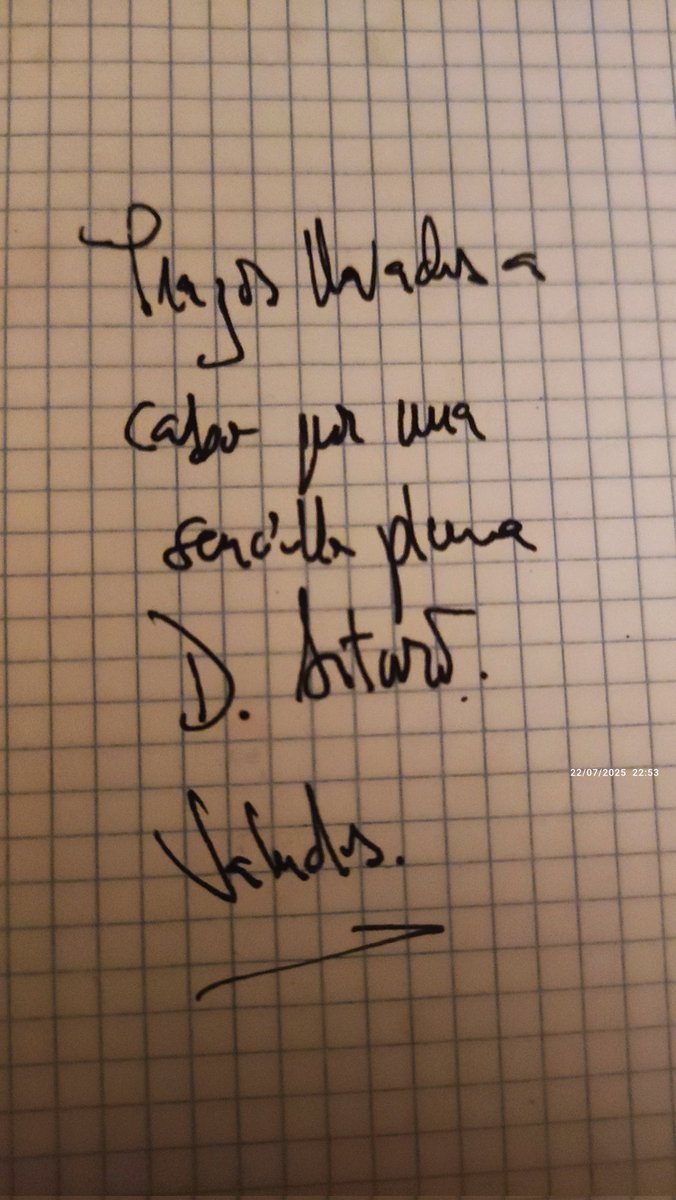 Trazos llevados a
cabo por una
sencilla pluma
D. Arturo.
22/07/2025 22:53
Saludos.